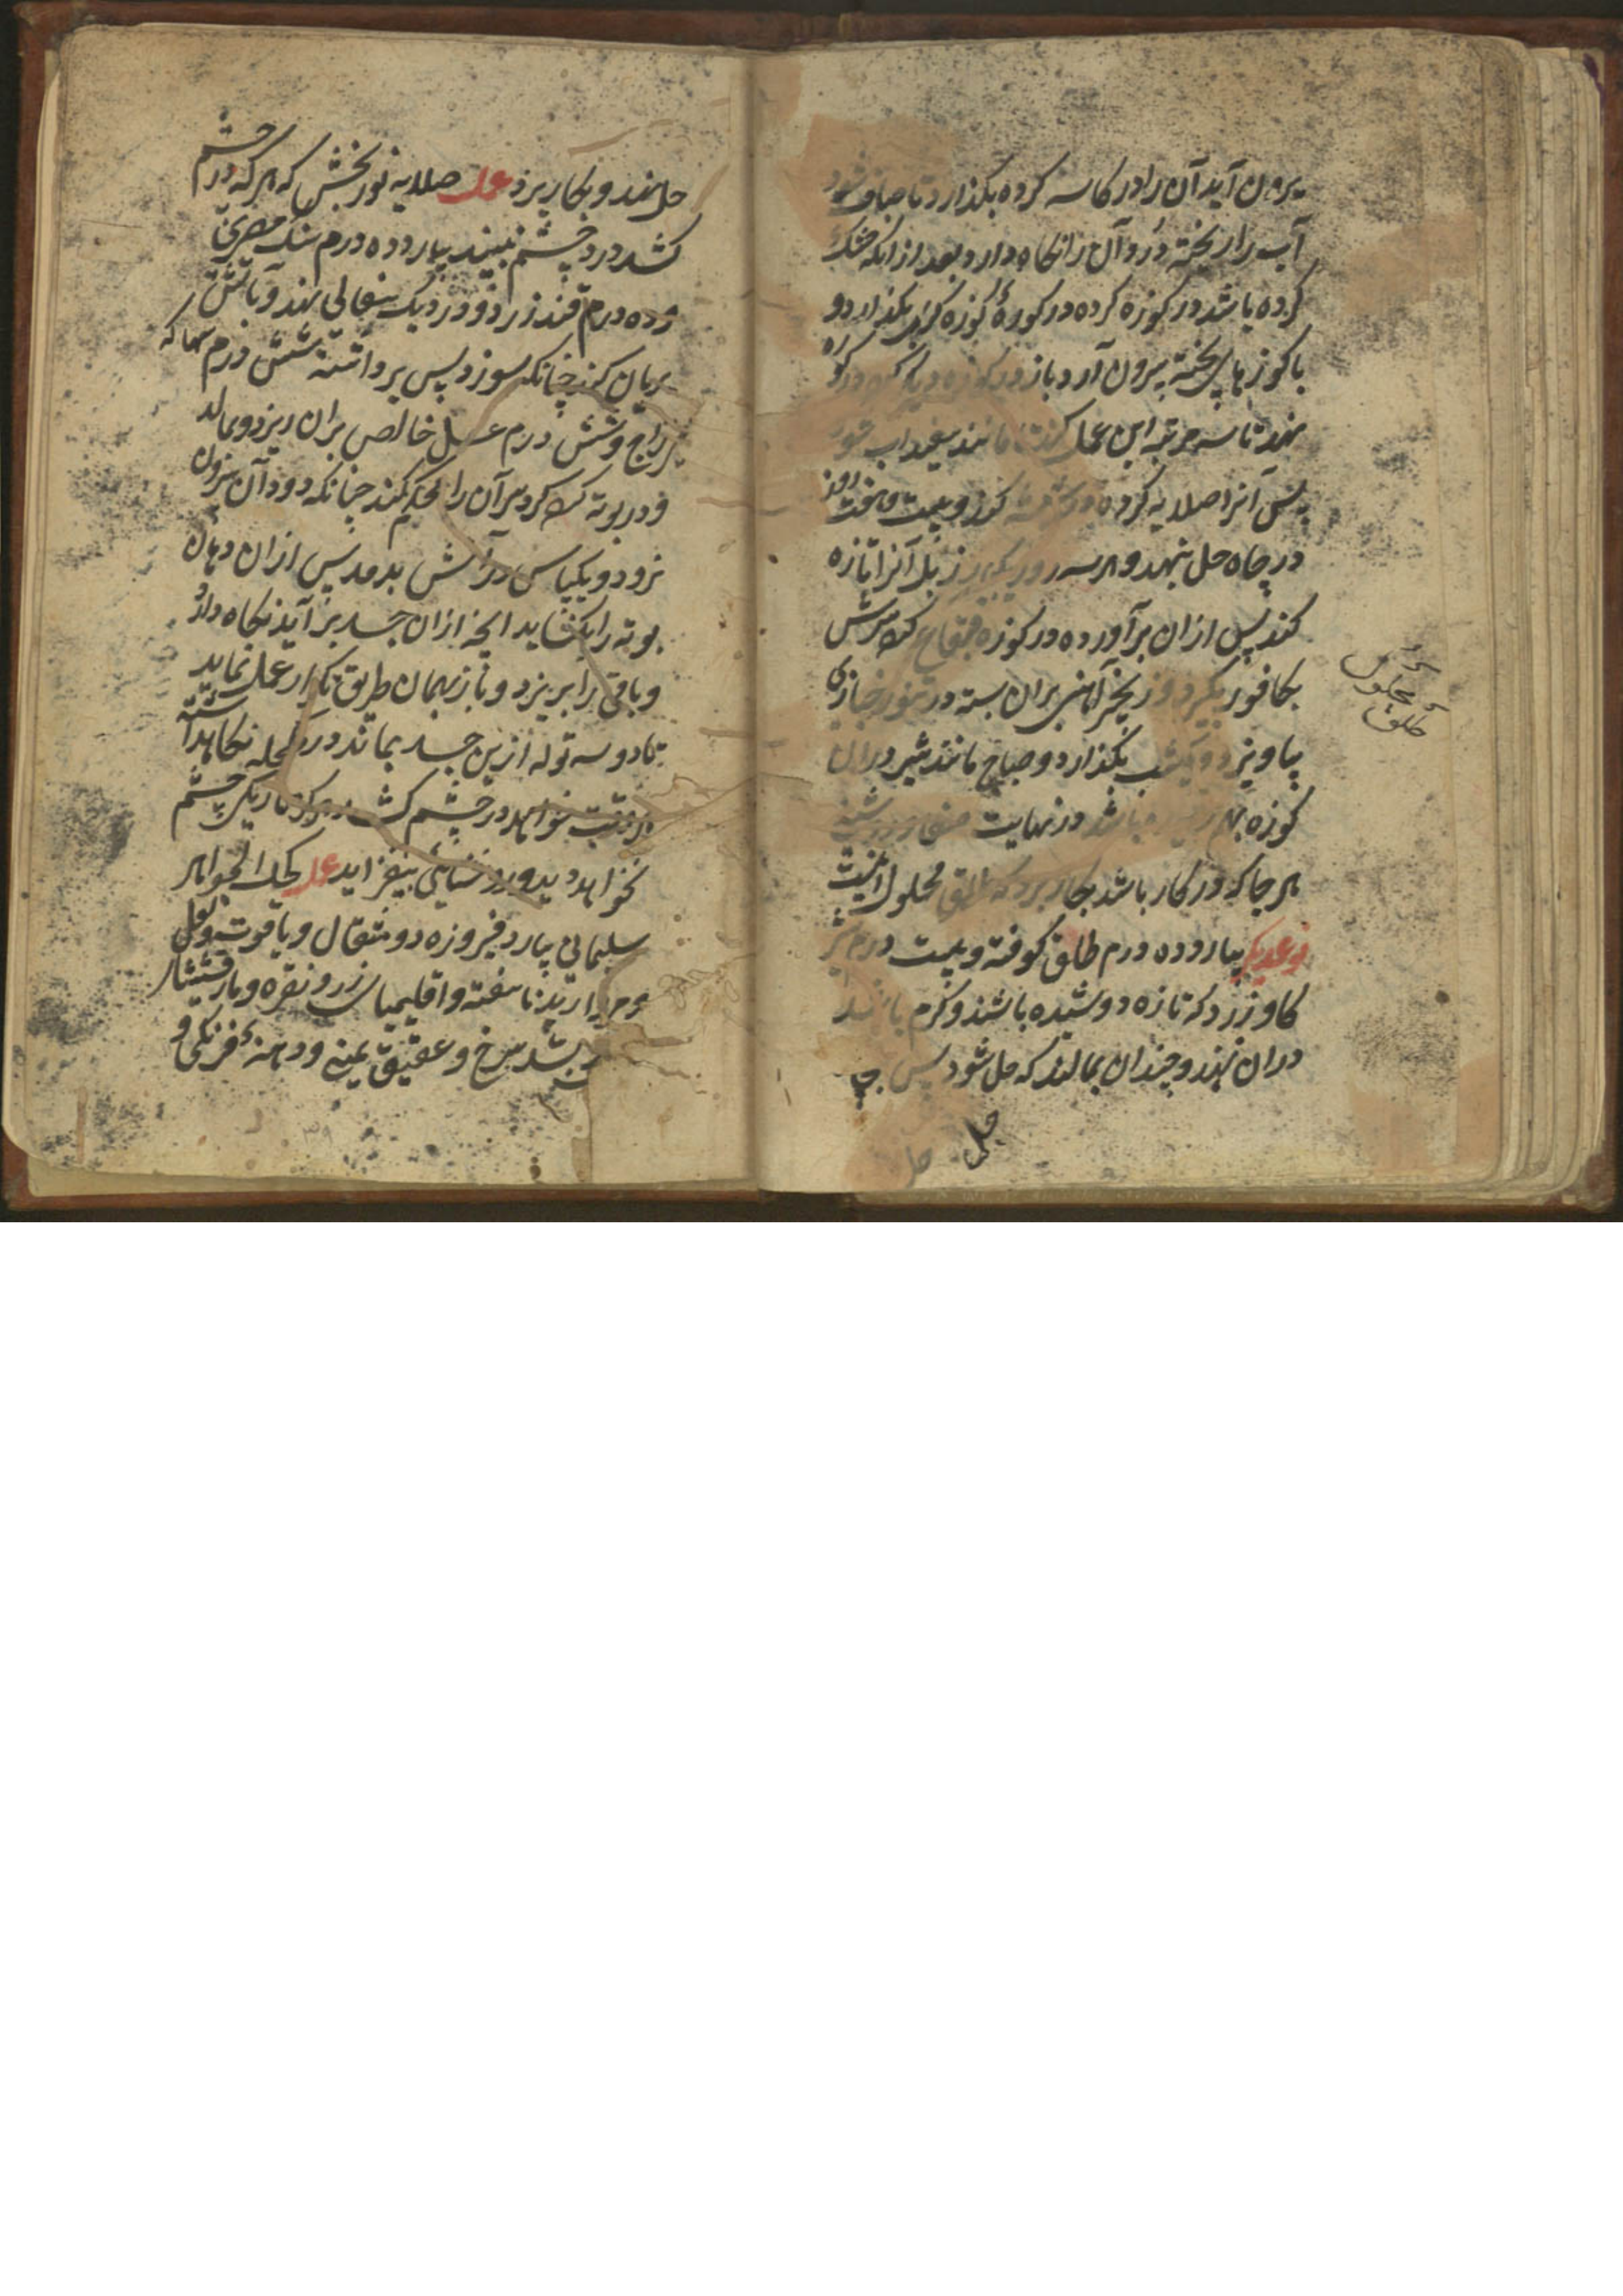 برون آید آن را در کاسه کرده بگذارد تا صاف شود
آب را ریخته دُرد آن را نگاه دارد بعد از آنکه خشک
کرده باشد در کوزه کرده در کورهٔ کوزه گران بگذارد و
با کوزهای پخته بیرون آرد و باز در کوزه دیگر کند در کوره
نهد تا سه مرتبه این عمل کند تا مانند سفیداب شود
پس آنرا صلایه کرده در شیشه کند و بیست و هفت روز
در چاه حل بنهد و هر سه روز یکبار زبل آنرا تازه
کند پس از آن برآورده در کوزه فقاع کند سرش
بکافور بگیرد و زنجیر آهنی بران بسته در تنور خبازی
بیاویزد و یکشب بگذارد و صباح مانند شیر در ان
کوزه باشد در نهایت
هر جا که در کار باشد بکار برد که طلق محلول اینست
نوعدیکر بیارد ده درم طلق کوفته و بیست درم شیر
کاو زرد که تازه دوشیده باشند و کرم باشد
دران نهند و چندان بمالند که حل شود پس
حل
طلق محلول
حل کنند و بکار برند عمل صلایه نوربخش که هر که در چشم
کشد درد چشم نبیند بیارد ده درم سنک مصری
و ده درم قند زرد و در دیک سفالی نهد و بآتش
بریان کند چنانکه سوزد پس برداشته شش درم سهاکه
و شش درم عسل خالص بران ریزد و بمالد
و در بوته کند کرد سر آن را محکم کند چنانکه دود آن بیرون
نرود و یکپاس در آتش بدمد پس ازان دهان
بوته را بکشاید انچه ازان جسد برآید نکاه دارد
و باقی را بریزد و باز بهمان طریق تکرار عمل نماید
تا دو سه توله ازین جسد بماند در مکحله نکاهداشته
هر وقت خواهد در چشم کشد هرکز تاریکی چشم
نخواهد دید و روشنایی بیفزاید عمل کحل الجواهر
سلیمانی بیارد فیروزه دو مثقال و یاقوت و لعل
و مروارید ناسفته و اقلیمیای زر و نقره و مارقشیشا
و بسد سرخ و عقیق یمنی و دهنهٔ فرنکی و
۳۹